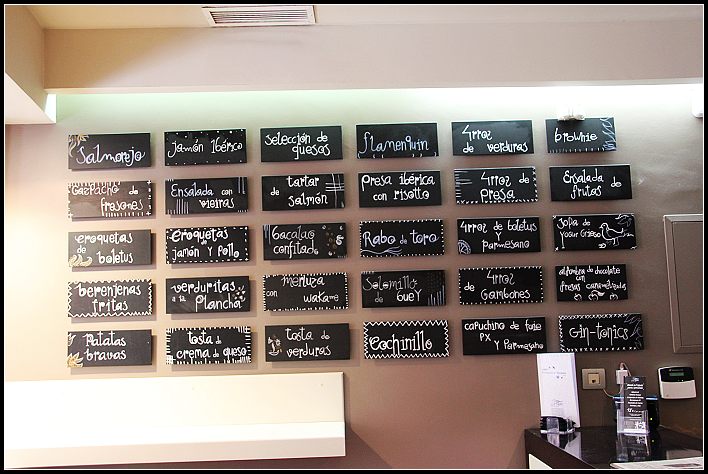 Salmorejo
jamón ibérico
selección de
quesos
flamenquin
Arroz
de verduras
brownie
Gazpacho de
fresones
Ensalada con
vieiras
tartar
de
salmón
Presa ibérica
con risotto
Arroz de
Presa
Ensalada de
frutas
croquetas
de
boletus
croquetas de
jamón y pollo
Bacalao
confitado
Rabo de toro
Arroz de boletus
y parmesano
Sopa de
yogur Griego
berenjenas
fritas
verduritas
a la Plancha
merluza
con wakame
Solomillo
de buey
Arroz
de
Gambones
alfombra de chocolate
con fresas caramelizadas
Patatas
bravas
tosta de
crema de queso
tosta de
verduras
Cochinillo
capuchino de foie
PX
y Parmesano
Gin-tonics